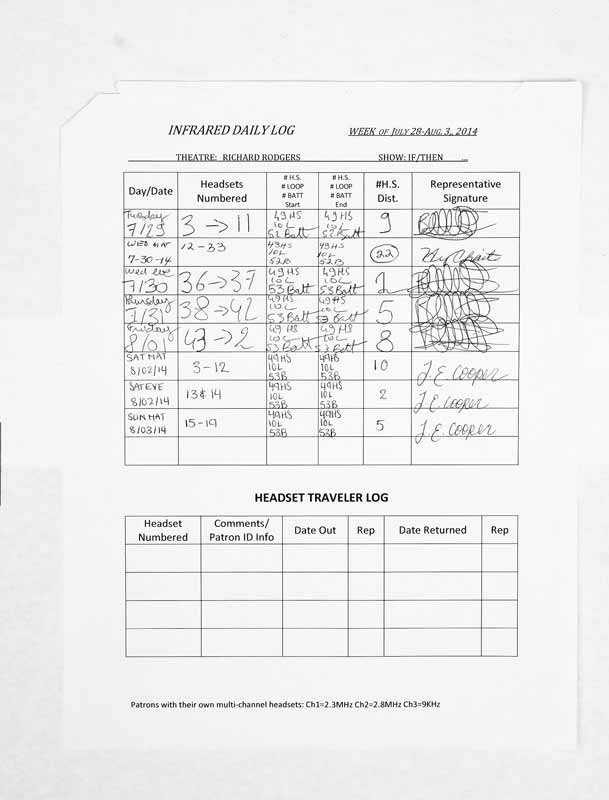 INFRARED DAILY LOG WEEK OF JULY 28-AUG. 3, 2014
THEATRE: RICHARD RODGERS SHOW: IF/THEN ...
Day/Date Headsets Numbered # H.S. # LOOP # BATT Start # H.S. # LOOP # BATT End #H.S. Dist. Representative Signature
Tuesday 7/29 3→11 49HS 10L 52 Batt 49HS 10L 52 Batt 9
WED MAT 7-30-14 12-33 49HS 10L 52B 49HS 10L 52B 22
Wed eve 7/30 36→37 49HS 10L 53Batt 49HS 10L 53Batt 2
Thursday 7/31 38→42 49HS 10L 53Batt 49HS 10L 53 Batt 5
Friday 8/01 43→2 49 HS 10L 53Batt 49 HS 10L 53Batt 8
SAT MAT 8/02/14 3-12 49HS 10L 53B 49HS 10L 53B 10 J.E. Cooper
SAT EVE 8/02/14 13 & 14 49HS 10L 53B 49HS 10L 53B 2 J.E. Cooper
SUN MAT 8/03/14 15-19 49HS 10L 53B 49HS 10L 53B 5 J.E. Cooper
HEADSET TRAVELER LOG
Headset Numbered Comments/ Patron ID Info Date Out Rep Date Returned Rep
Patrons with their own multi-channel headsets: Ch1=2.3MHz Ch2=2.8MHz Ch3=9KHz